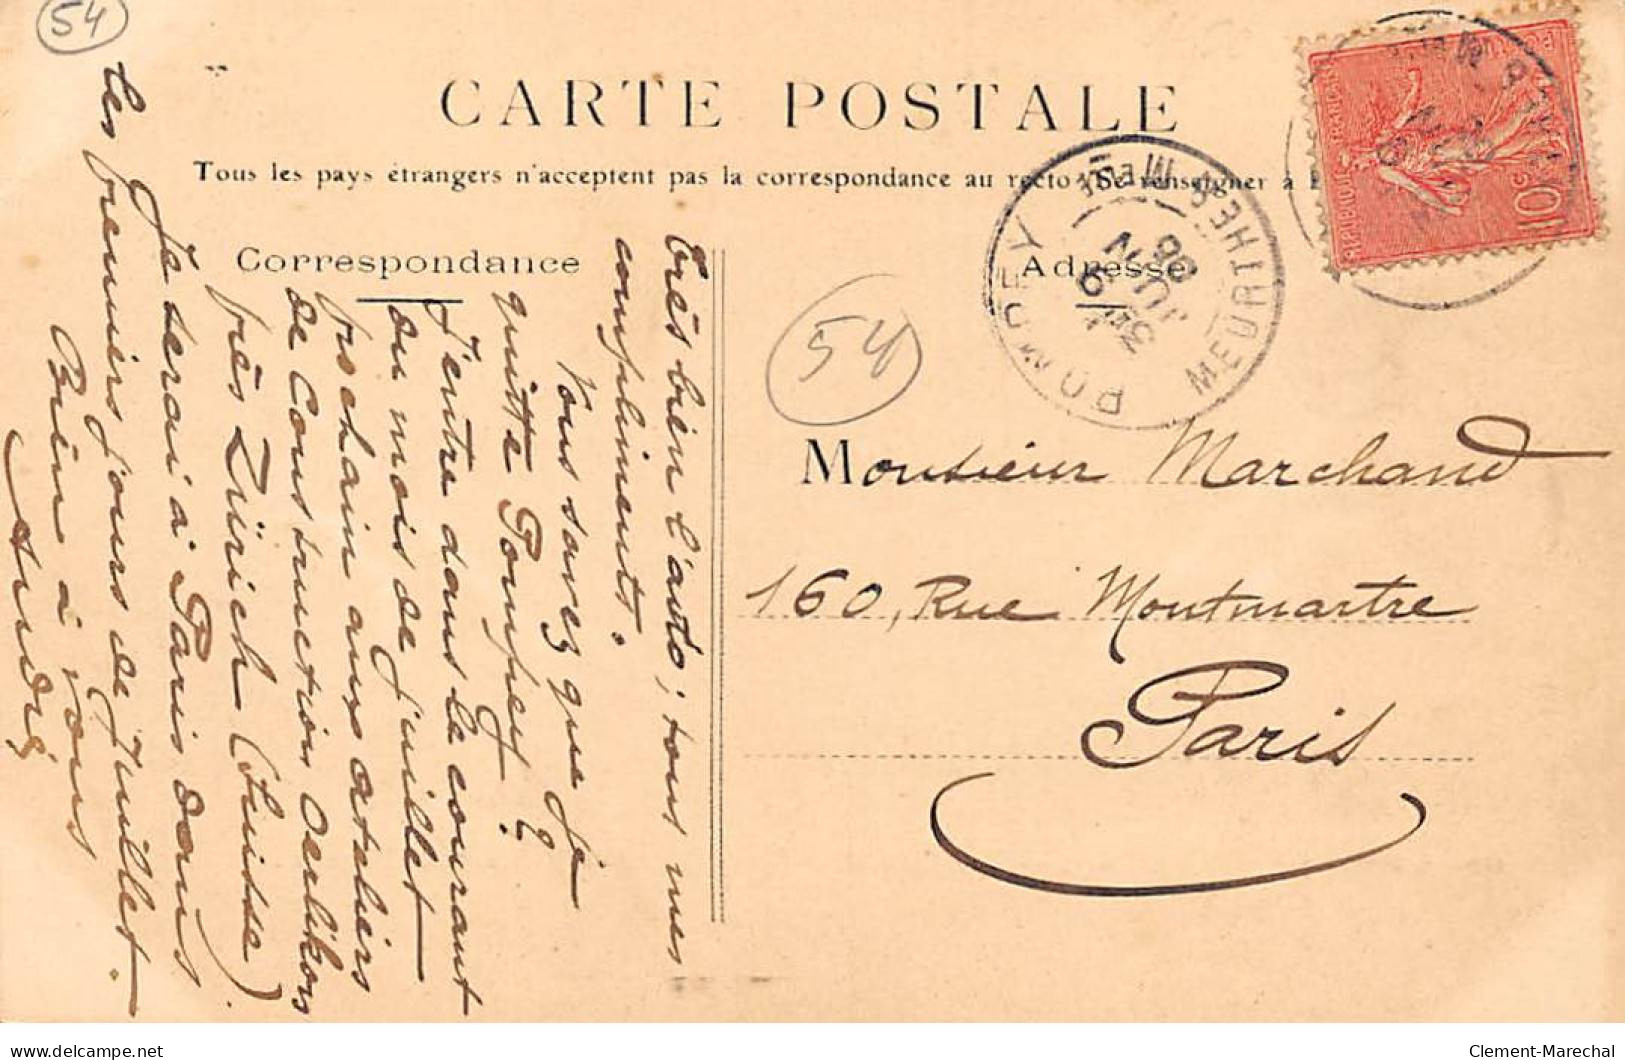 54
CARTE POSTALE
Tous les pays étrangers n'acceptent pas la correspondance au recto (Se renseigner à
Correspondance
Adresse
54
POMPEY
MEURTHE & MELLE
3E
9
JUIN
06
10
POSTES
Monsieur Marchand
160, Rue Montmartre
Paris
Très bien l'auto; tous mes
compliments.
Vous savez que je
quitte Pompey ?
J'entre dans le courant
du mois de juillet
prochain aux ateliers
de Construction Oerlikon
près Zürich (Suisse)
Je serai à Paris dans
les premiers jours de Juillet.
Bien à vous
André
delcampe.net
Clement-Marechal